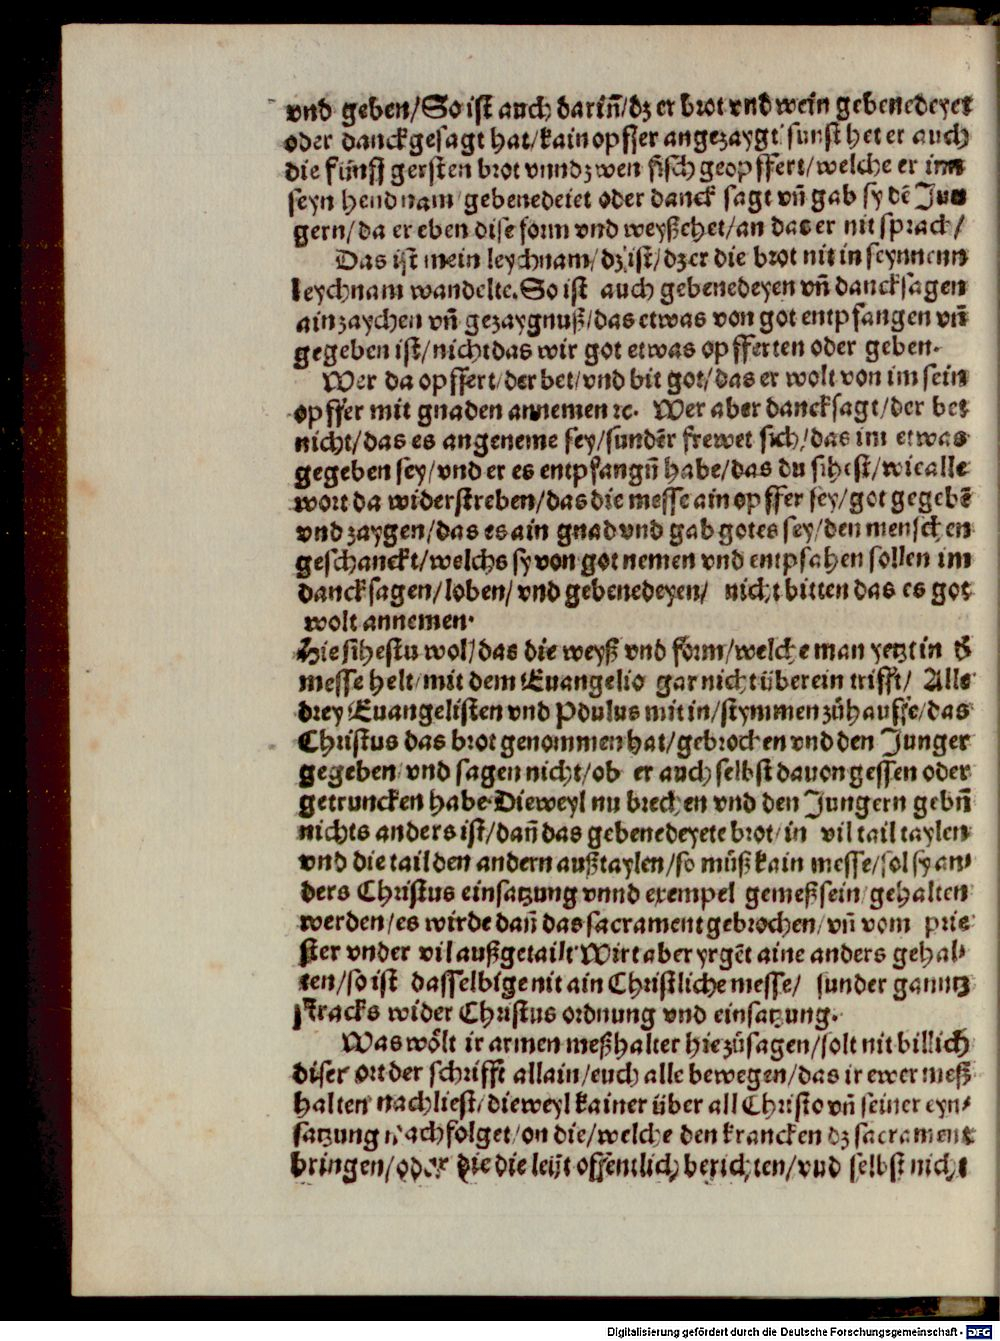 vnd geben/So ist auch darinn̄/dz er brot vnd wein gebenedeyet
oder danckgesagt hat/kain opffer angezaygt sunst het er auch
die fünff gersten brot vnnd zwen fisch geopffert/welche er inn
seyn hend nam/gebenedeiet oder danck sagt vn̄ gab sy dē Jun
gern/da er eben dise form vnd weyß het/an das er nit sprach/
Das ist mein leychnam/dz ist/dz er die brot nit in seynnenn
leychnam wandelte. So ist auch gebenedeyen vn̄ dancksagen
ain zaychen vn̄ gezaygnuß/das etwas von got entpfangen vn̄
gegeben ist/nicht das wir got etwas opfferten oder geben.
Wer da opffert/der bet/vnd bit got/das er wolt von im sein
opffer mit gnaden annemen ꝛc. Wer aber dancksagt/der bet
nicht/das es angeneme sey/sundēr frewet sich/das im etwas
gegeben sey/vnd er es entpfangn̄ habe/das du sihest/wie alle
wort da widerstreben/das die messe ain opffer sey/got gegebē
vnd zaygen/das es ain gnad vnd gab gotes sey/den menschen
geschanckt/welchs sy von got nemen vnd entpfahen sollen im
dancksagen/loben/vnd gebenedeyen/ nicht bitten das es got
wolt annemen.
Hie sihestu wol/das die weyß vnd form/welche man yetzt in ď
messe helt/mit dem Euangelio gar nicht überein trifft/ Alle
drey Euangelisten vnd Pdulus mit in/stymmen zůhauffe/das
Christus das brot genommen hat/gebrochen vnd den Junger
gegeben/vnd sagen nicht/ob er auch selbst dauon gessen oder
getruncken habe Dieweyl nu brechen vnd den Jungern gebn̄
nichts anders ist/dan̄ das gebenedeyete brot/in vil tail taylen
vnd die tail den andern außtaylen/so můß kain messe/sol sy an⸗
ders Christus einsatzung vnnd exempel gemeß sein/gehalten
werden/es wirde dan̄ das sacrament gebrochen/vn̄ vom prie
ster vnder vil außgetailt Wirt aber yrgēt aine anders gehal⸗
ten/so ist dasselbige nit ain Christliche messe/ sunder ganntz
stracks wider Christus ordnung vnd einsatzung.
Was wölt ir armen meßhalter hie zů sagen/solt nit billich
diser ort der schrifft allain/euch alle bewegen/das ir ewer meß
halten nachliest/dieweyl kainer über all Christo vn̄ seiner eyn⸗
satzung nachfolget/on die/welche den krancken dz sacrament
bringen/oder die die leüt offentlich berichten/vnd selbst nicht
Digitalisierung gefördert durch die Deutsche Forschungsgemeinschaft - DFG